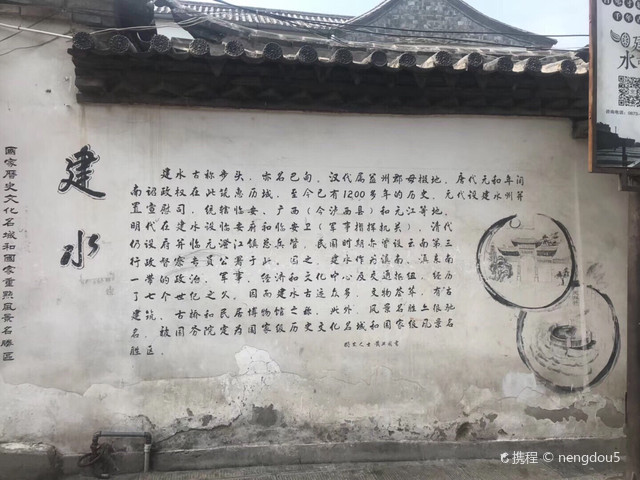 建水
国家历史文化名城和国家重点风景名胜区
建水古称步头，亦名巴甸。汉代属益州郡毋掇地，唐代元和年间
南诏政权在此筑惠历城，至今已有1200多年的历史。元代设建水州并
置宣慰司，统辖临安、广西（今泸西县）和元江等地。
明代在建水设临安府和临安卫（军事指挥机关），清代
仍设府并临元澄江镇总兵管。民国时期亦曾设云南第三
行政督察专员公署于此。因之，建水作为滇南、滇东南
一带的政治、军事、经济和文化中心及交通枢纽，经历
了七个世纪之久，因而建水古迹众多，文物荟萃，有古
建筑、古桥和民居博物馆之称，此外，风景名胜土很驰
名，被国务院定为国家级历史文化名城和国家级风景名
胜区。
水
携程 © nengdou5